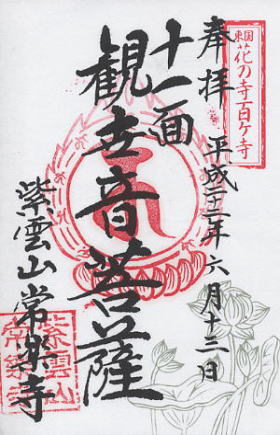 東国花の寺百ヶ寺
奉拝 平成二十二年六月十三日
十一面
観世音菩薩
紫雲山常楽寺